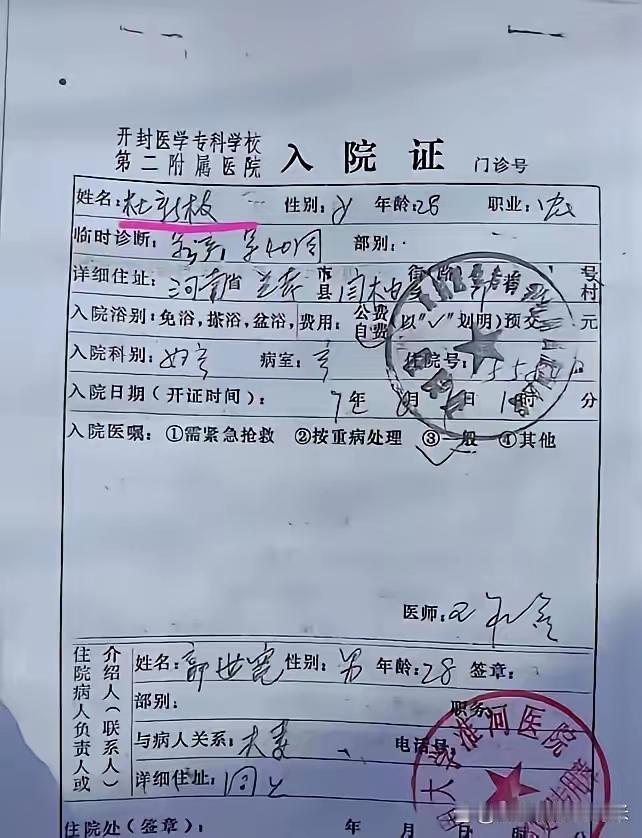 开封医学专科学校
第二附属医院 入院证 门诊号
姓名:杜新枝 性别:女 年龄:28 职业:农
临时诊断: 孕40周 部别:
详细住址:河南省兰考市县 街(路) 号村
入院浴别:免浴,搽浴,盆浴,费用:公费自费(以"√"划明)预交 元
入院科别:妇产 病室:产 住院号:
入院日期(开证时间): 年 月 日 时 分
入院医嘱:①需紧急抢救 ②按重病处理 ③一般 ④其他
医师:
住院病人负责人或介绍人(联系人)
姓名:郭世宽 性别:男 年龄:28 签章:
部别: 职务:
与病人关系:夫妻 电话号:
详细住址:同上
住院处(签章): 年 月 日 时 分
淮河医院